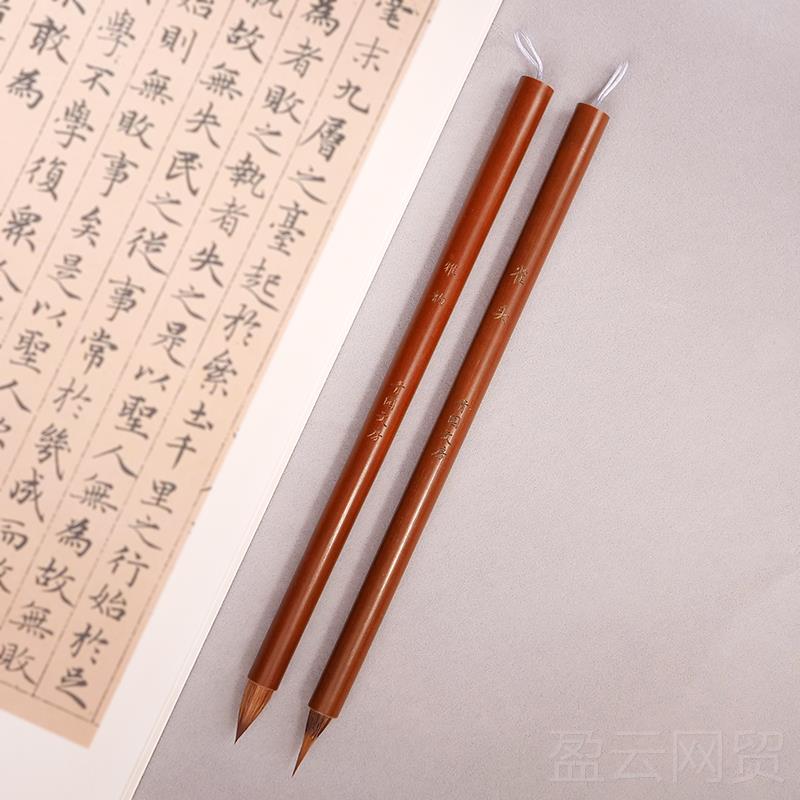 毫末九層之臺起於絫土千里之行始於足
為者敗之執者失之是以聖人無為故無敗
執故無失民之從事常於幾成而敗
始則無敗事矣是以聖人
學不學復眾人
敢為
文房
雀头
文房
盈云网贸